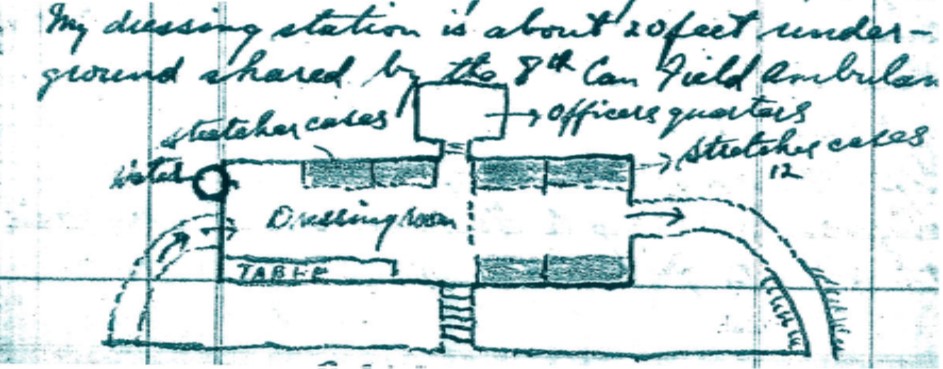 My dressing station is about 20 feet under-
ground shared by the 8th Can Field Ambulan
stretcher cases
Officers quarters
stretcher cases
12
Water
Dressing room
TABLE